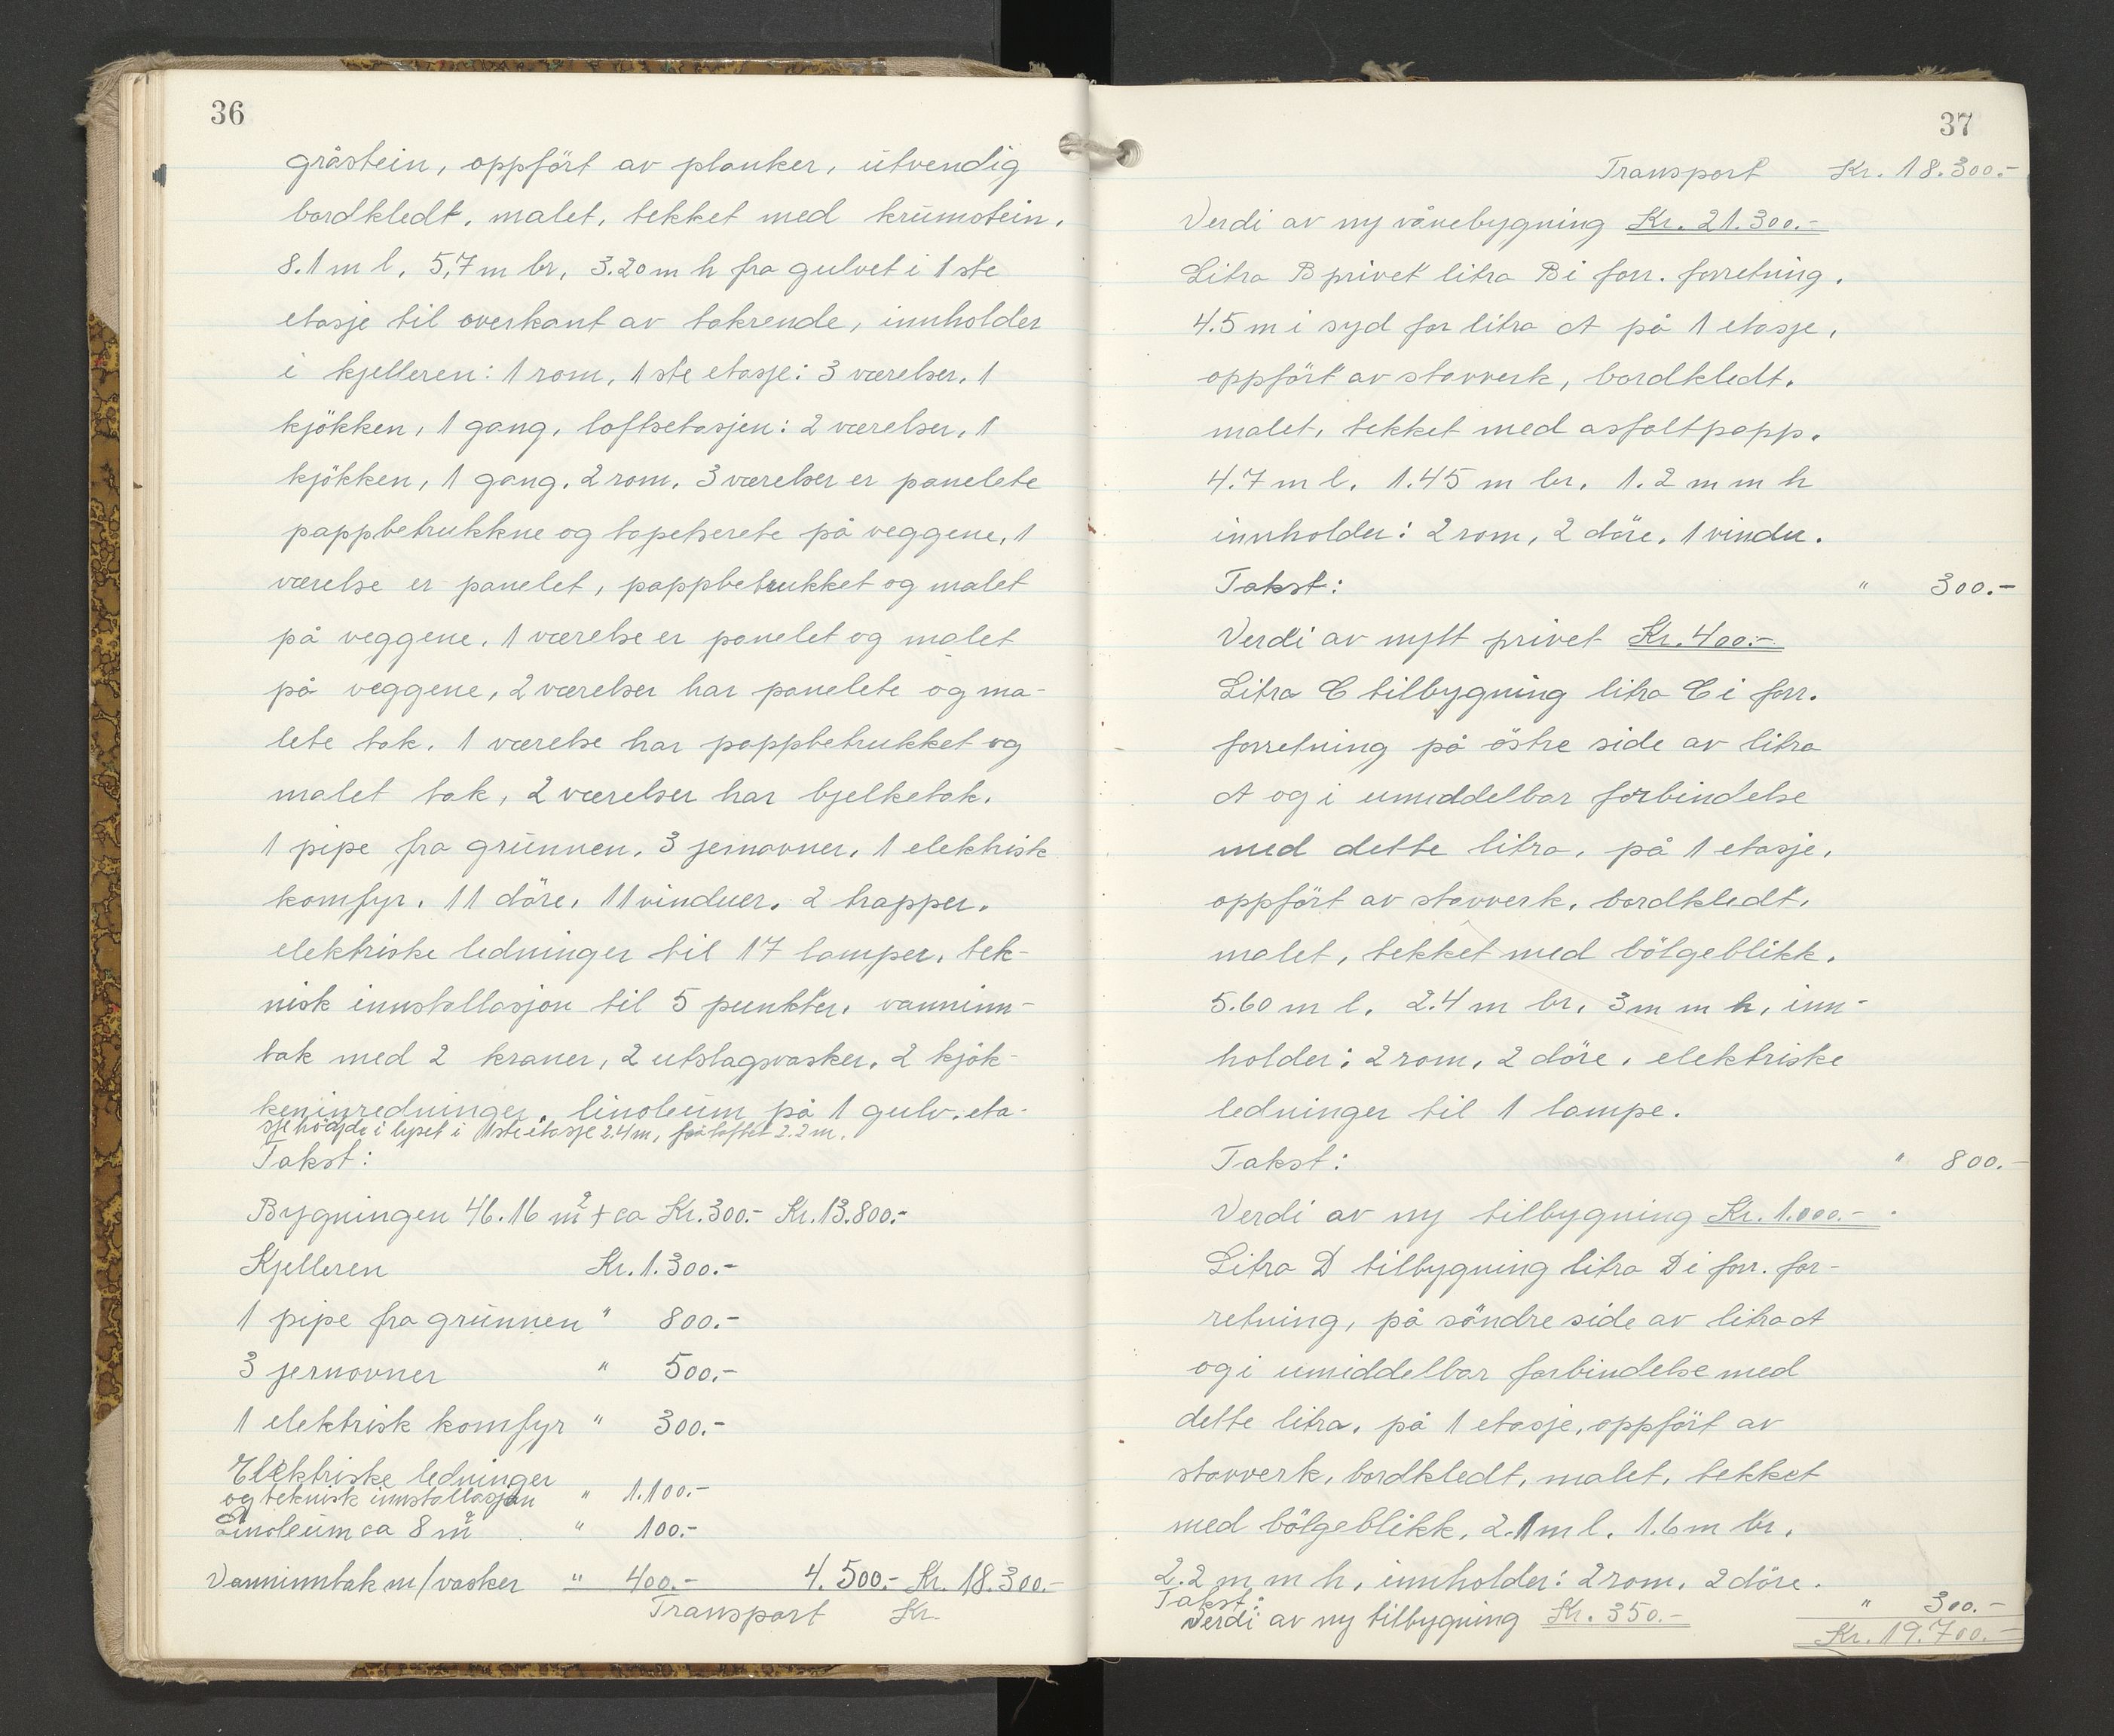 36
gråstein, oppfört av planker, utvendig
bordkledt, malet, tekket med krumstein.
8.1 m l, 5,7 m br, 3.20 m h fra gulvet i 1ste
etasje til overkant av takrende, innholder
i kjelleren: 1 rom, 1ste etasje: 3 værelser, 1
kjökken, 1 gang, loftsetasjen: 2 værelser, 1
kjökken, 1 gang, 2 rom. 3 værelser er panelete
pappbetrukkne og tapetserete på veggene, 1
værelse er panelet, pappbetrukket og malet
på veggene, 1 værelse er panelet og malet
på veggene, 2 værelser har panelete og ma-
lete tak, 1 værelse har pappbetrukket og
malet tak, 2 værelser har bjelketak.
1 pipe fra grunnen, 3 jernovner, 1 elektrisk
komfyr, 11 döre, 11 vinduer, 2 trapper,
elektriske ledninger til 17 lamper, tek-
nisk innstallasjon til 5 punkter, vanninn-
tak med 2 kraner, 2 utslagsvasker, 2 kjök-
keninredninger, linoleum på 1 gulv, eta-
sjehöide i lyset i 1ste etasje 2.4 m, på loftet 2.2 m.
Takst:
Bygningen 46.16 m² + ca Kr. 300.- Kr. 13.800.-
Kjelleren Kr. 1.300.-
1 pipe fra grunnen " 800.-
3 jernovner " 500.-
1 elektrisk komfyr " 300.-
Elektriske ledninger
og teknisk innstallasjon " 1.100.-
Linoleum ca 8 m² " 100.-
Vanninntak m/vasker " 400.- 4.500.- Kr. 18.300.-
Transport Kr.
37
Transport Kr. 18.300.-
Verdi av ny vånebygning Kr. 21.300.-
Litra B privet litra B i forr. forretning,
4.5 m i syd for litra A på 1 etasje,
oppfört av stavverk, bordkledt,
malet, tekket med asfaltpapp.
4.7 m l. 1.45 m br. 1.2 m m h
innholder: 2 rom, 2 döre, 1 vindu.
Takst: " 300.-
Verdi av nytt privet Kr. 400.-
Litra C tilbygning litra C i forr.
forretning på östre side av litra
A og i umiddelbar forbindelse
med dette litra, på 1 etasje,
oppfört av stavverk, bordkledt,
malet, tekket med bölgeblikk.
5.60 m l. 2.4 m br. 3 m m h, inn-
holder: 2 rom, 2 döre, elektriske
ledninger til 1 lampe.
Takst: " 800.-
Verdi av ny tilbygning Kr. 1.000.-
Litra D tilbygning litra D i forr. for-
retning, på söndre side av litra A
og i umiddelbar forbindelse med
dette litra, på 1 etasje, oppfört av
stavverk, bordkledt, malet, tekket
med bölgeblikk, 2.1 m l. 1.6 m br.
2.2 m m h, innholder: 2 rom, 2 döre.
Takst: " 300.-
Verdi av ny tilbygning Kr. 350.-
Kr. 19.700.-